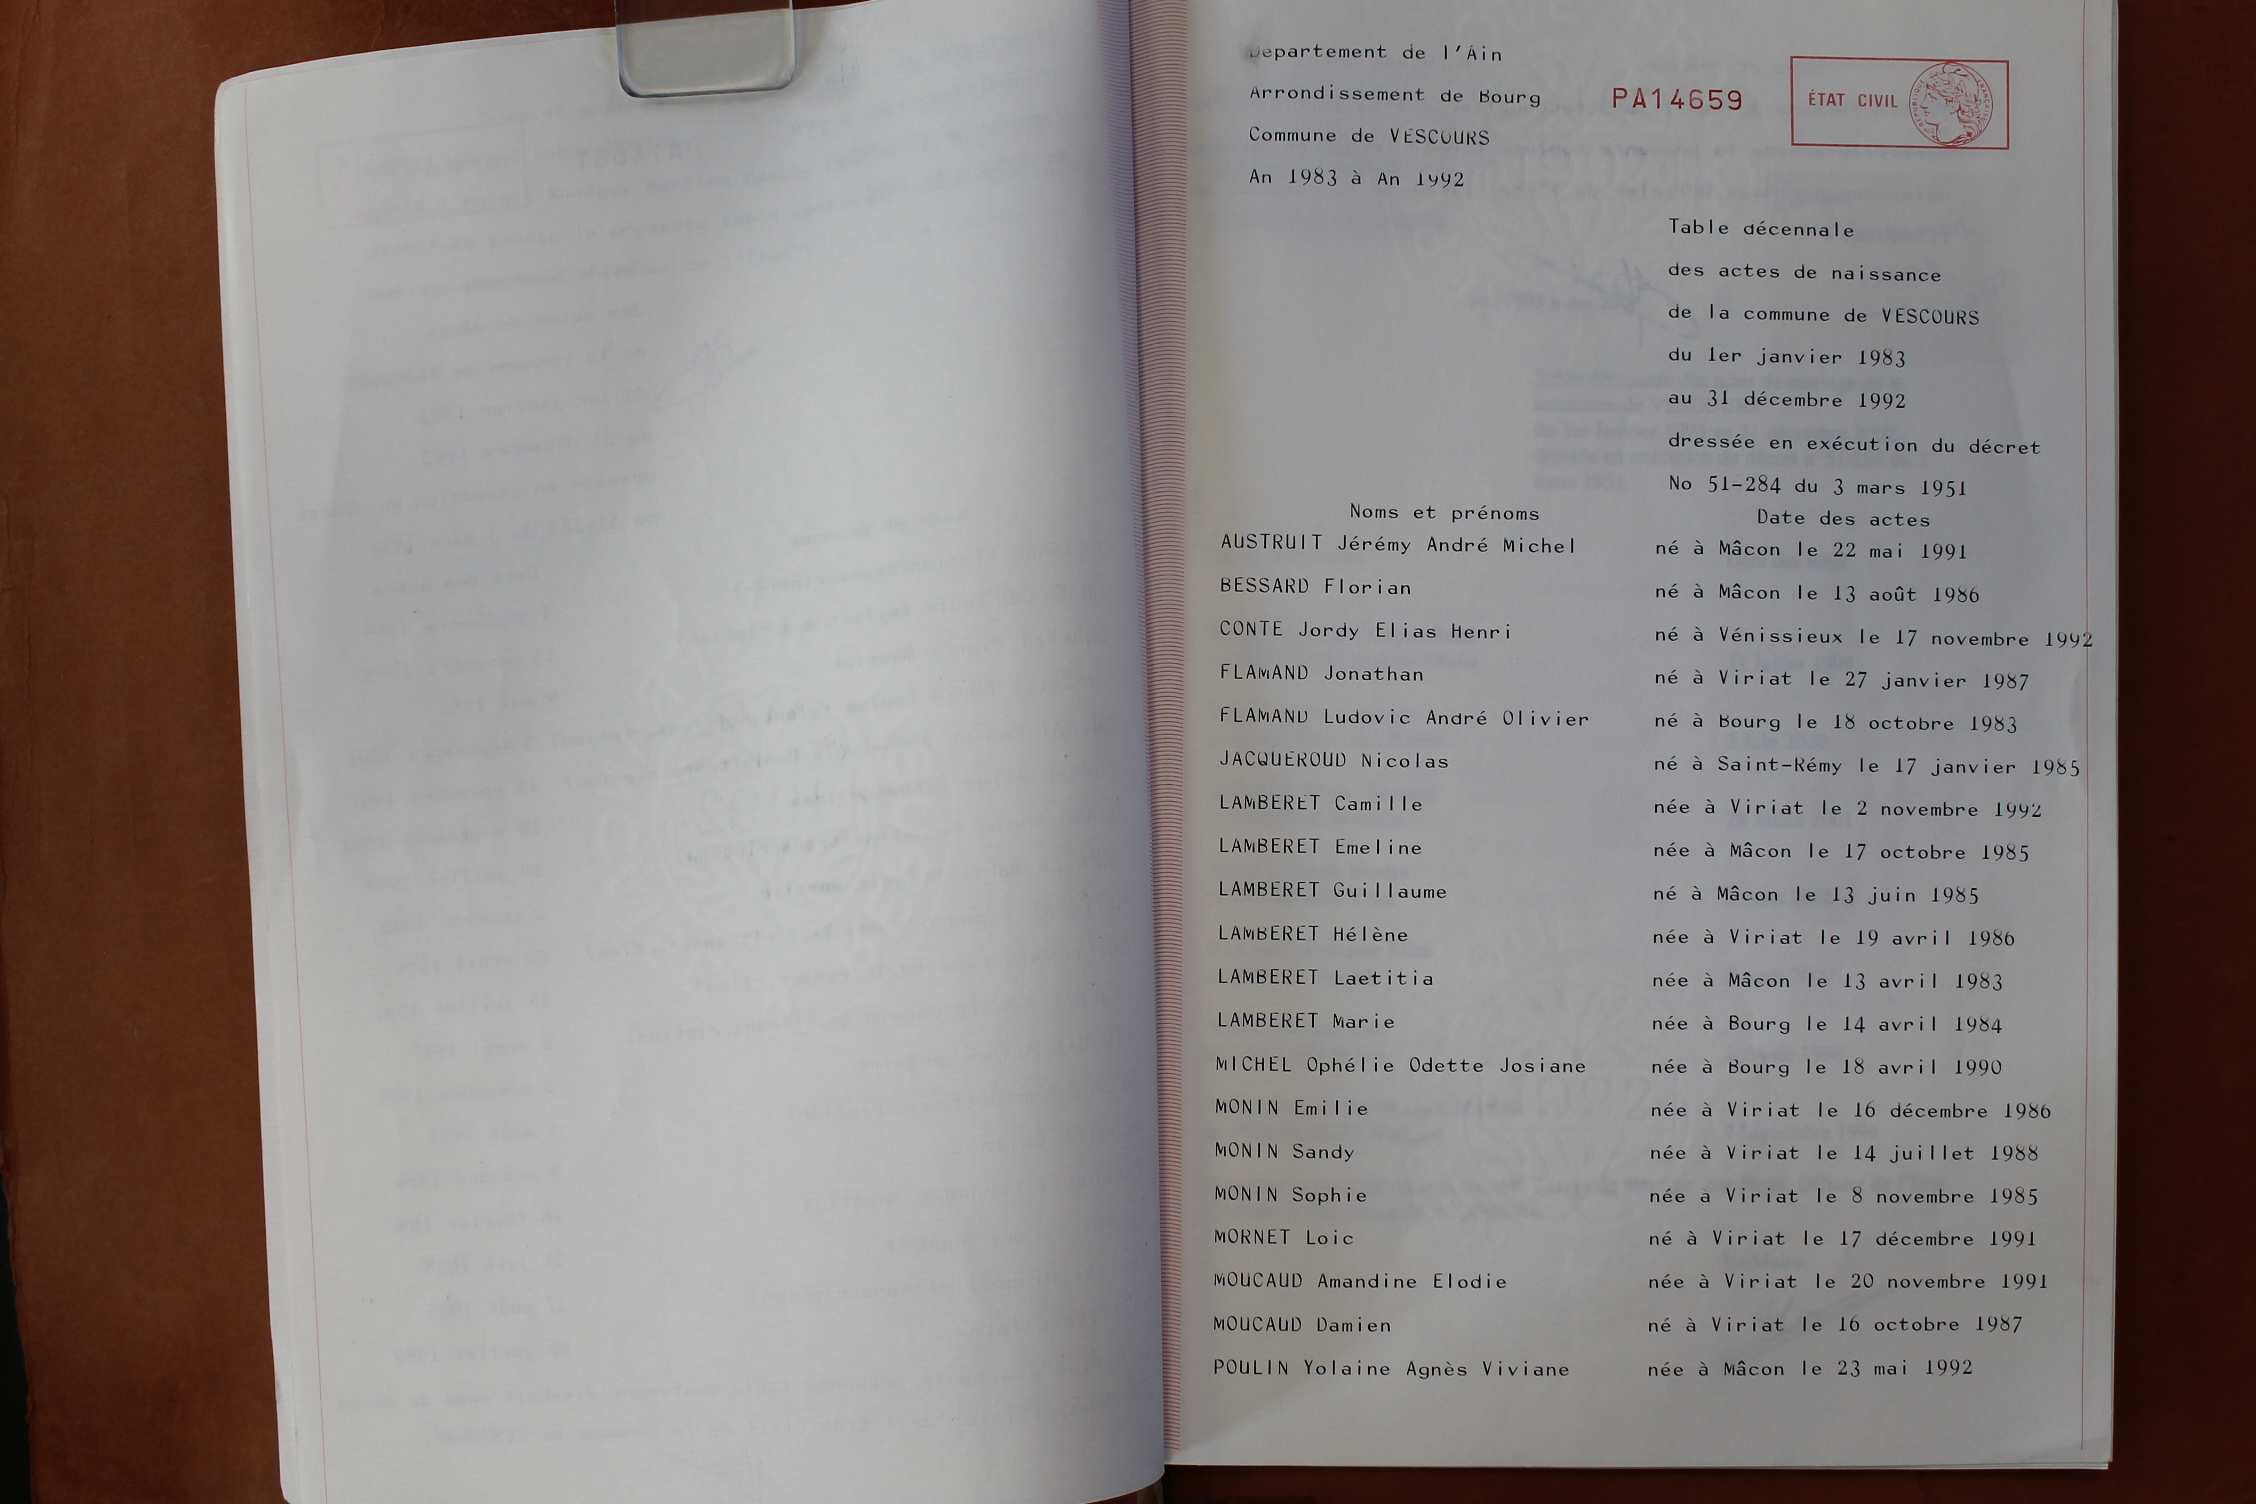 Département de l'Ain
Arrondissement de Bourg
PA14659
ÉTAT CIVIL
RÉPUBLIQUE FRANÇAISE
Commune de VESCOURS
An 1983 à An 1992
Table décennale
des actes de naissance
de la commune de VESCOURS
du 1er janvier 1983
au 31 décembre 1992
dressée en exécution du décret
No 51-284 du 3 mars 1951
Noms et prénoms Date des actes
AUSTRUIT Jérémy André Michel né à Mâcon le 22 mai 1991
BESSARD Florian né à Mâcon le 13 août 1986
CONTE Jordy Elias Henri né à Vénissieux le 17 novembre 1992
FLAMAND Jonathan né à Viriat le 27 janvier 1987
FLAMAND Ludovic André Olivier né à Bourg le 18 octobre 1983
JACQUEROUD Nicolas né à Saint-Rémy le 17 janvier 1985
LAMBERET Camille née à Viriat le 2 novembre 1992
LAMBERET Emeline née à Mâcon le 17 octobre 1985
LAMBERET Guillaume né à Mâcon le 13 juin 1985
LAMBERET Hélène née à Viriat le 19 avril 1986
LAMBERET Laetitia née à Mâcon le 13 avril 1983
LAMBERET Marie née à Bourg le 14 avril 1984
MICHEL Ophélie Odette Josiane née à Bourg le 18 avril 1990
MONIN Emilie née à Viriat le 16 décembre 1986
MONIN Sandy née à Viriat le 14 juillet 1988
MONIN Sophie née à Viriat le 8 novembre 1985
MORNET Loic né à Viriat le 17 décembre 1991
MOUCAUD Amandine Elodie née à Viriat le 20 novembre 1991
MOUCAUD Damien né à Viriat le 16 octobre 1987
POULIN Yolaine Agnès Viviane née à Mâcon le 23 mai 1992